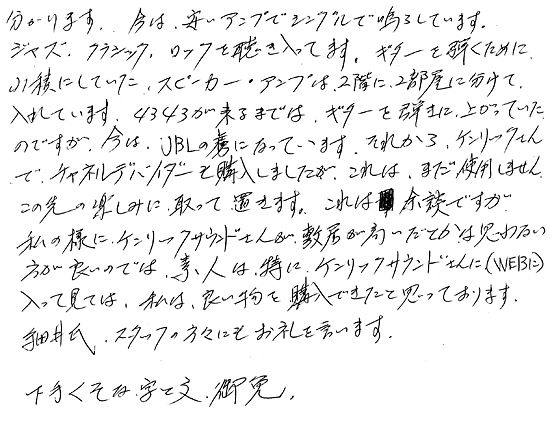 分かります。今は、安いアンプでシングルで鳴らしています。
ジャズ、クラシック、ロックを聴き入ってます。ギターを弾くために
山積にしていた、スピーカー・アンプは、2階に、2部屋に分けて、
入れています。4343が来るまでは、ギターを弾きに、上がっていた
のですが、今は、JBLの虜になっています。それから、ケンリックさん
で、チャネルデバイダーを購入しましたが、これは、まだ使用しません
この先の楽しみに、取って置きます。これは 余談ですが
私の様に、ケンリックサウンドさんが、敷居が高いだとかは思わない
方が良いのでは、素人は、特に、ケンリックサウンドさんに(WEBに)
入って見ては、私は、良い物を購入できたと思っております。
細井氏、スタッフの方々にもお礼を言います。
下手くそな字と文、御免、